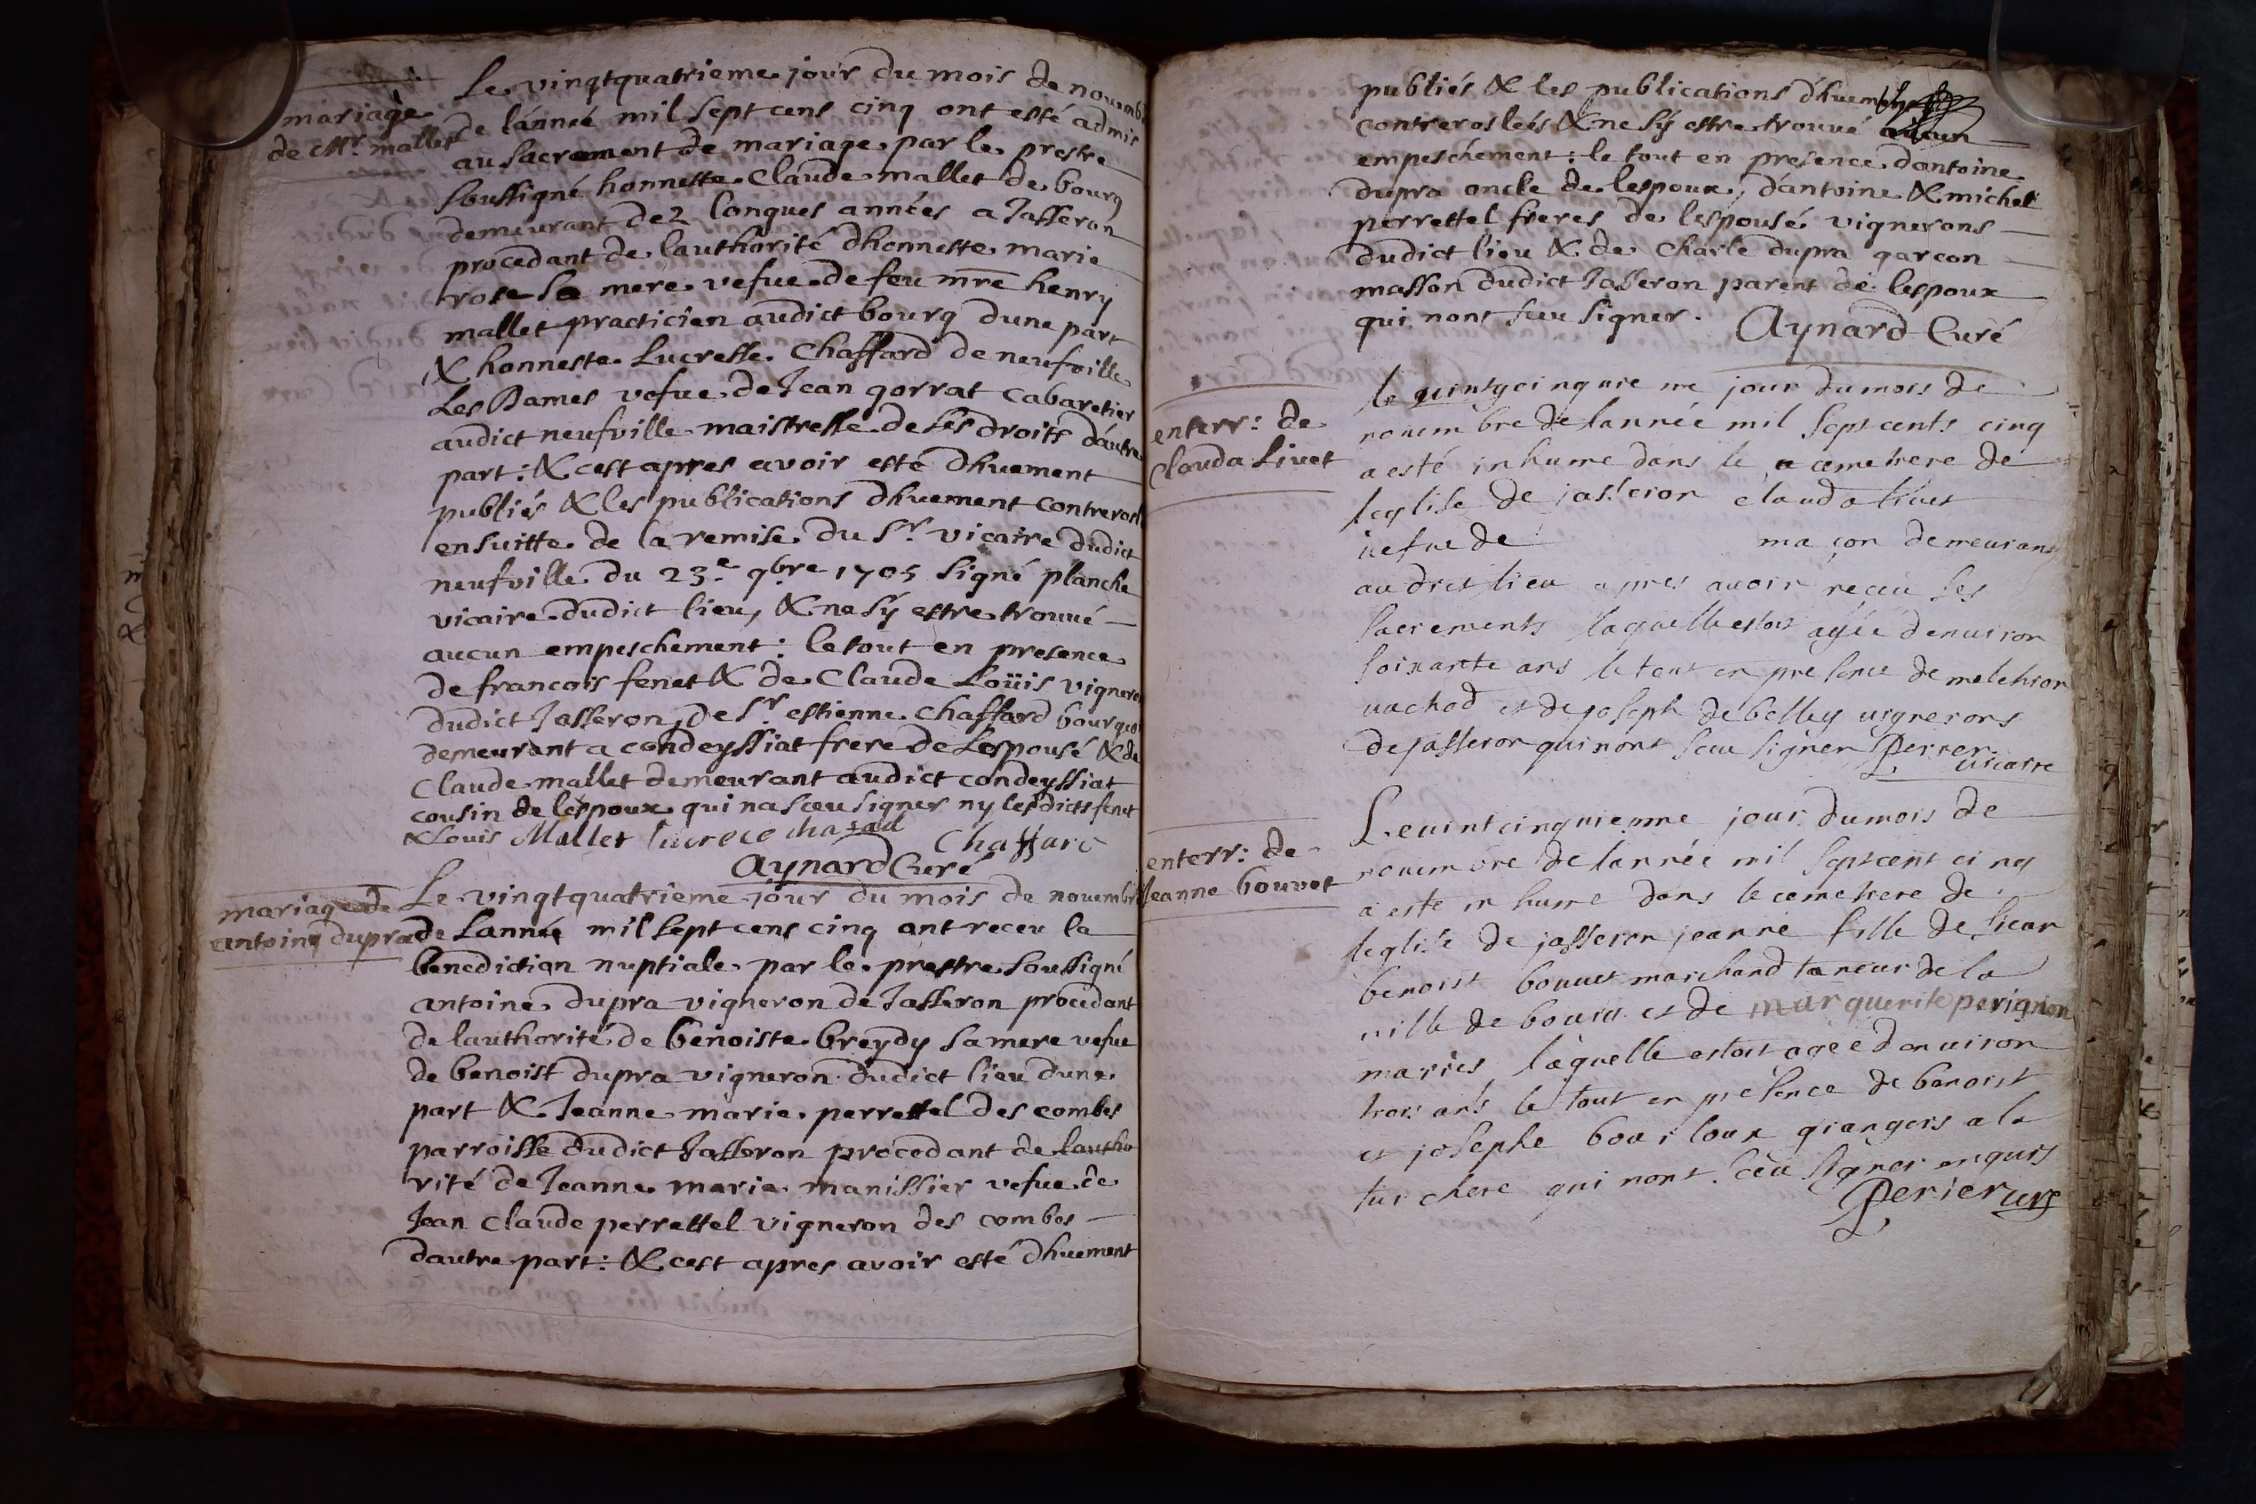 mariage
de Mr. mallet
Le vingtquatrieme jour du mois de novemb
de lánneé mil sept cens cinq ont esté admis
au sacrement de mariage par le prestre
soussigné honneste Claude mallet de bourg
demeurant de2 longues années a Jasseron
procedant de lauthorité dhonneste marie
rose sa mere vefue de feu mre henry
mallet practicien audict bourg dune part
& honneste Lucresse Chaffard de neufville
Les Dames vefue de Jean gorrat cabaretier
audict neufville maistresse de ses droits dáutre
part : & cest apres avoir esté dhuement
publiés & les publications dhuement contreros
ensuitte de la remise du Sr. vicaire dudict
neufville du 23.e 9bre 1705 signé planche
vicaire dudict lieu, & ne sÿ estre trouué
aucun empeschement : le tout en presence
de francois fenet & de Claude Loüis vignero
dudict Jasseron, de Sr. estienne Chaffard bourgeo
demeurant a condeyssiat frere de Lespousé & de
Claude mallet demeurant audict condeyssiat
cousin de léspoux qui na sceu signer ny lesdicts fenet
& Louis Mallet lucrece chafad Chaffard
Aynard Curé
mariage de
antoine dupra
Le vingtquatrieme jour du mois de novembr
de Lanneé mil sept cens cinq ont receu la
benediction nuptiale par le prestre soussigné
antoine dupra vigneron de Jasseron procedant
de lauthorité de benoiste breydy sa mere vefue
de benoist dupra vigneron dudict lieu dune
part & Jeanne marie perrettel des combes
parroisse dudict Jasseron procedant de lautho
rité de Jeanne marie manissier vefue de
Jean Claude perrettel vigneron des combes
dautre part : & cest apres avoir esté dhuement
publiés & les publications dhuement
contreroslées & ne sÿ estre trouué aucun
empeschement : le tout en presence dantoine
dupra oncle de lespoux, dántoine & michel
perrettel freres de lespousé vignerons
dudict lieu & de Charle dupra garcon
masson dudict Jasseron parent de lespoux
qui nont sceu signer. Aynard Curé
enterr : de
Clauda Livet
le cinquieme jour du mois de
nouembre de lannée mil sept cents cinq
a esté inhume dans le cemetiere de
leglise de jasseron clauda livet
vefue de maçon demeurant
au dict lieu apres auoir receu ses
sacrements laquelle estoit agée denuiron
soixante ans le tout en presence de melchior
uachod et de joseph de belley uignerons
de jasseron qui nont sceu signer Perier
uicaire
enterr : de
Jeanne bouvet
Le uint cinquieme jour du mois de
nouembre de lannée mil sept cent cinq
a este inhume dans le cemetiere de
leglise de jasseron jeanne fille de sieur
benoist bouuet marchand taneur de la
uille de bourg et de marguerite perignon
mariés laquelle estoit agée denuiron
trois ans le tout en presence de benoist
et josephe bouiloux grangers a la
tuichere qui nont sceu signer enquis
Perier